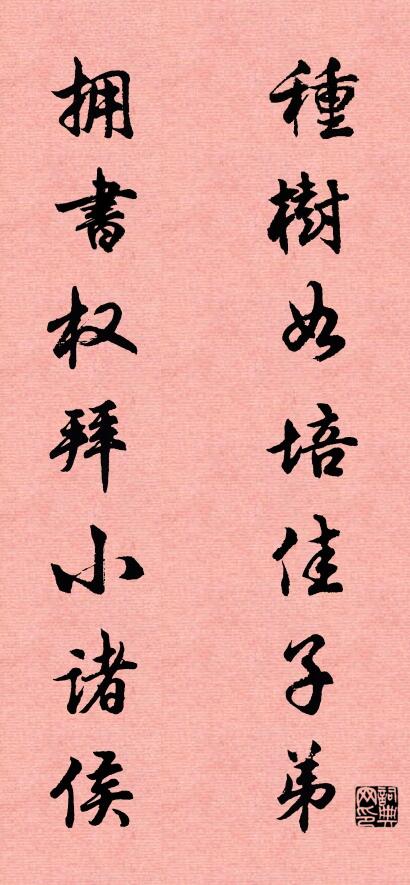 種樹如培佳子弟
拥書权拜小諸侯
詞典网印